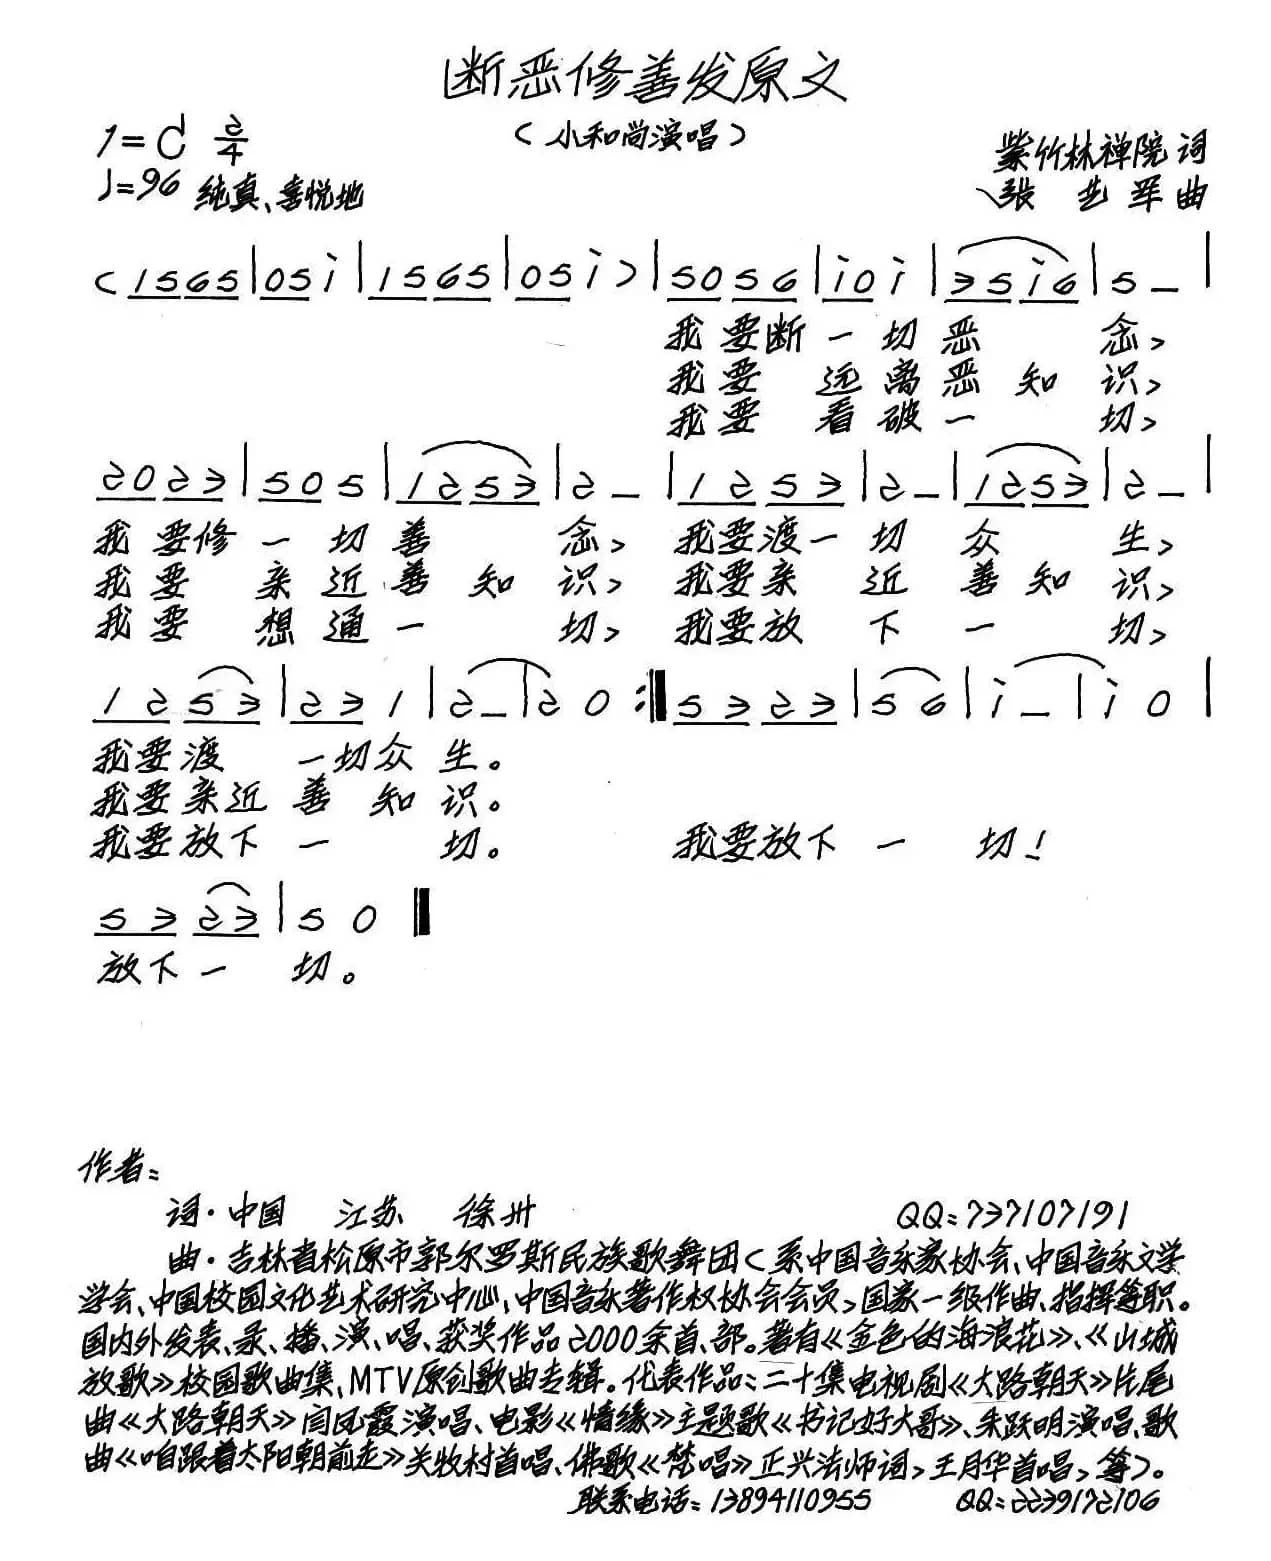 断恶修善发原文
(小和尚演唱)
1=C 2/4
紫竹林禅院 词
♩=96 纯真、喜悦地
张 艺 军 曲
(1565|05i|1565|05i)|5056|i0i|35i6|5-|
我要断一切恶 念,
我要 远离恶 知 识,
我要 看破一 切,
2023|505|1253|2-|1253|2-|1253|2-|
我 要修一 切善 念, 我要渡一切 众 生,
我 要 亲近善 知 识, 我要亲 近 善 知 识,
我 要 想通一 切, 我要放 下 一 切,
1253|231|2-|20:‖5323|56|i-|i0|
我要渡 一切众 生。
我要亲近 善 知 识。
我要放下 一 切。 我要放下 一 切!
5323|50‖
放下一 切。
作者:
词·中国 江苏 徐州 QQ:737107191
曲·吉林省松原市郭尔罗斯民族歌舞团(系中国音乐家协会、中国音乐文学
学会、中国校园文化艺术研究中心,中国音乐著作权协会会员,国家一级作曲、指挥等职。
国内外发表、录、播、演、唱、获奖作品2000余首、部。著有《金色的海浪花》、《山城
放歌》校园歌曲集,MTV原创歌曲专辑。代表作品:二十集电视剧《大路朝天》片尾
曲《大路朝天》闫凤霞演唱、电影《情缘》主题歌《书记好大哥》、朱跃明演唱、歌
曲《咱跟着太阳朝前走》关牧村首唱、佛歌《梵唱》正兴法师词,王月华首唱,等)。
联系电话:13894110955 QQ:2239172106